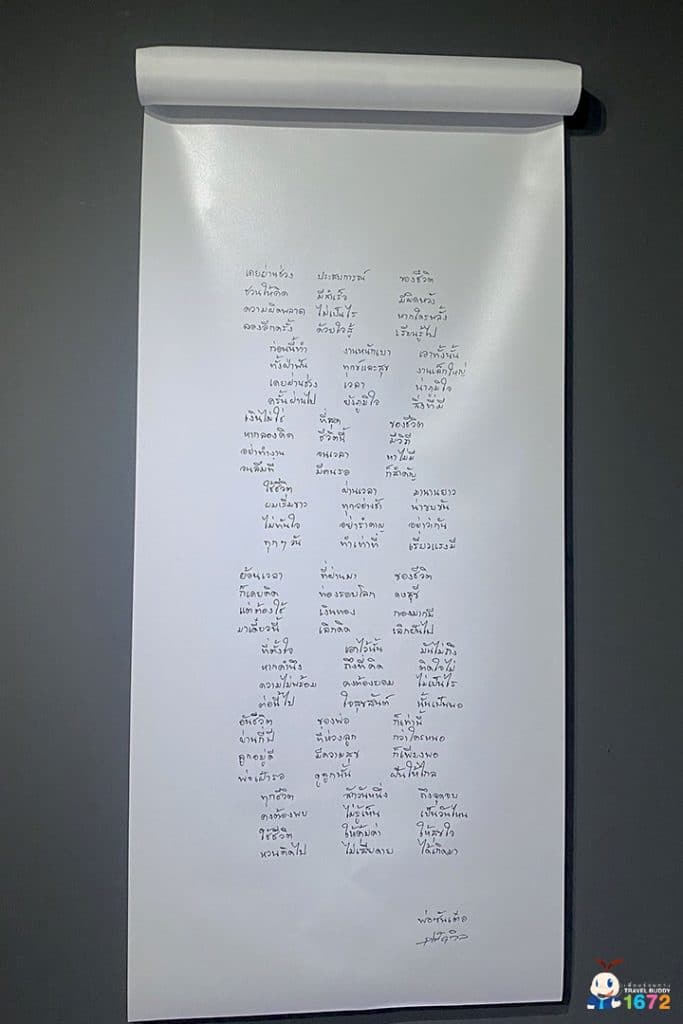 เคยผ่านช่วง ประสบการณ์ ของชีวิต
ชวนให้คิด มีสำเร็จ มีผิดหวัง
ความผิดพลาด ไม่เป็นไร หากใครพลั้ง
ลองอีกครั้ง ด้วยใจสู้ เรียนรู้ไป
ก่อนนี้ทำ งานหนักเบา เอาทั้งนั้น
ทั้งฝ่าฟัน ทุกข์และสุข งานเล็กใหญ่
เคยผ่านช่วง เวลา น่าภูมิใจ
ครั้นผ่านไป ยังภูมิใจ สิ่งที่มี
เงินไม่ใช่ ที่สุด ของชีวิต
หากลองคิด ชีวิตนี้ มีวิถี
อย่าทำงาน จนเวลา หาไม่มี
จนลืมที่ มีคนรอ ก็สำคัญ
ใช้ชีวิต ผ่านเวลา มานานยาว
ผมเริ่มขาว ทุกอย่างช้า น่าขบขัน
ไม่ทันใจ อย่ารำคาญ อย่าว่ากัน
ทุกๆวัน ทำเท่าที่ เรี่ยวแรงมี
ย้อนเวลา ที่ผ่านมา ของชีวิต
ก็เคยคิด ท่องรอบโลก คงสุขี
แต่ต้องใช้ เงินทอง กองมากมี
มาเดี๋ยวนี้ เลิกคิด เลิกฝันไป
ที่ตั้งใจ เอาไว้นั้น มันไม่ถึง
หากคำนึง ถึงที่คิด ติดใจไม่
ความไม่พร้อม คงต้องยอม ไม่เป็นไร
ต่อนี้ไป ใจสุขสันต์ นั้นเป็นพอ
อันชีวิต ของพ่อ ก็เท่านี้
ผ่านกี่ปี ที่ห่วงลูก กว่าใครหนอ
ลูกอยู่ดี มีความสุข ก็เพียงพอ
พ่อเฝ้ารอ ดูลูกนั้น ฝันให้ไกล
ทุกชีวิต สักวันหนึ่ง ถึงจุดจบ
คงต้องพบ ไม่รู้เห็น เป็นวันไหน
ใช้ชีวิต ให้คุ้มค่า ให้สุขใจ
หวนคิดไป ไม่เสียดาย ได้เกิดมา
พ่อซันเต๋อ
เพื่อนร่วมทาง
TRAVEL BUDDY
1672